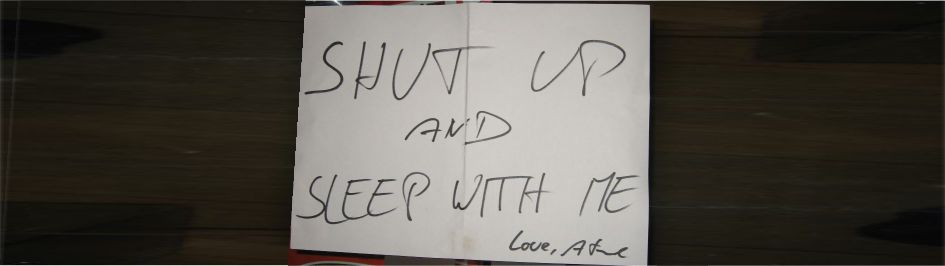 SHUT UP
AND
SLEEP WITH ME
Love,